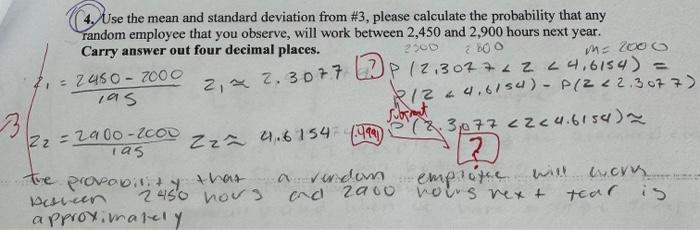 4. Use the mean and standard deviation from #3, please calculate the probability that any
random employee that you observe, will work between 2,450 and 2,900 hours next year.
Carry answer out four decimal places.
2800 M = 2000
Z1 = 2450-2000 / 195 Z1 ≈ 2.3077 ? P(2.3077 < Z < 4.6154) =
P(Z < 4.6154) - P(Z < 2.3077)
subtract
-3
Z2 = 2900-2000 / 195 Z2 ≈ 4.6154 .4999 P(2.3077 < Z < 4.6154) ≈
?
The probability that a random employee will work
between 2450 hours and 2900 hours next year is
approximately